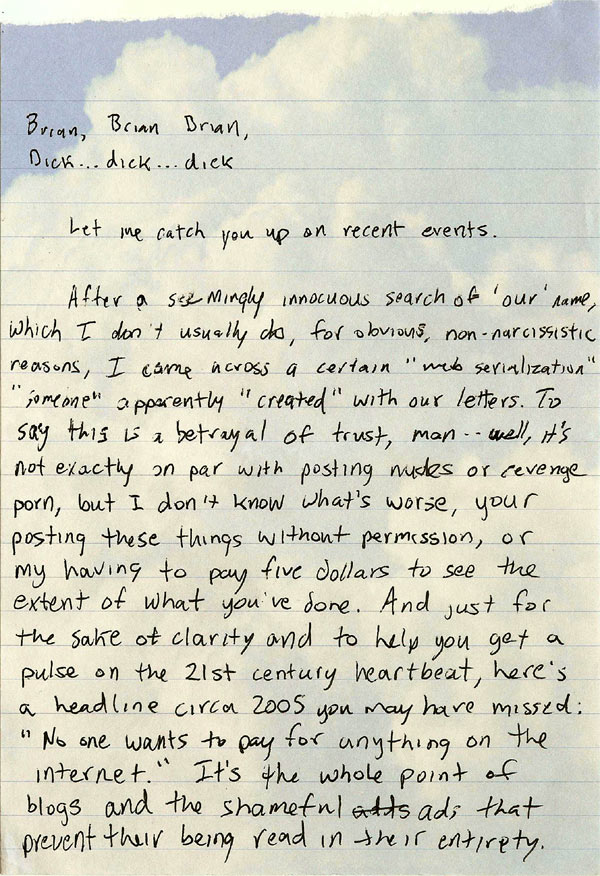 Brian, Brian Brian,
Dick... dick... dick
Let me catch you up on recent events.
After a seemingly innocuous search of 'our' name,
which I don't usually do, for obvious, non-narcissistic
reasons, I came across a certain "web serialization"
"someone" apparently "created" with our letters. To
say this is a betrayal of trust, man -- well, it's
not exactly on par with posting nudes or revenge
porn, but I don't know what's worse, your
posting these things without permission, or
my having to pay five dollars to see the
extent of what you've done. And just for
the sake of clarity and to help you get a
pulse on the 21st century heartbeat, here's
a headline circa 2005 you may have missed:
"No one wants to pay for anything on the
internet." It's the whole point of
blogs and the shameful adds ads that
prevent their being read in their entirety.